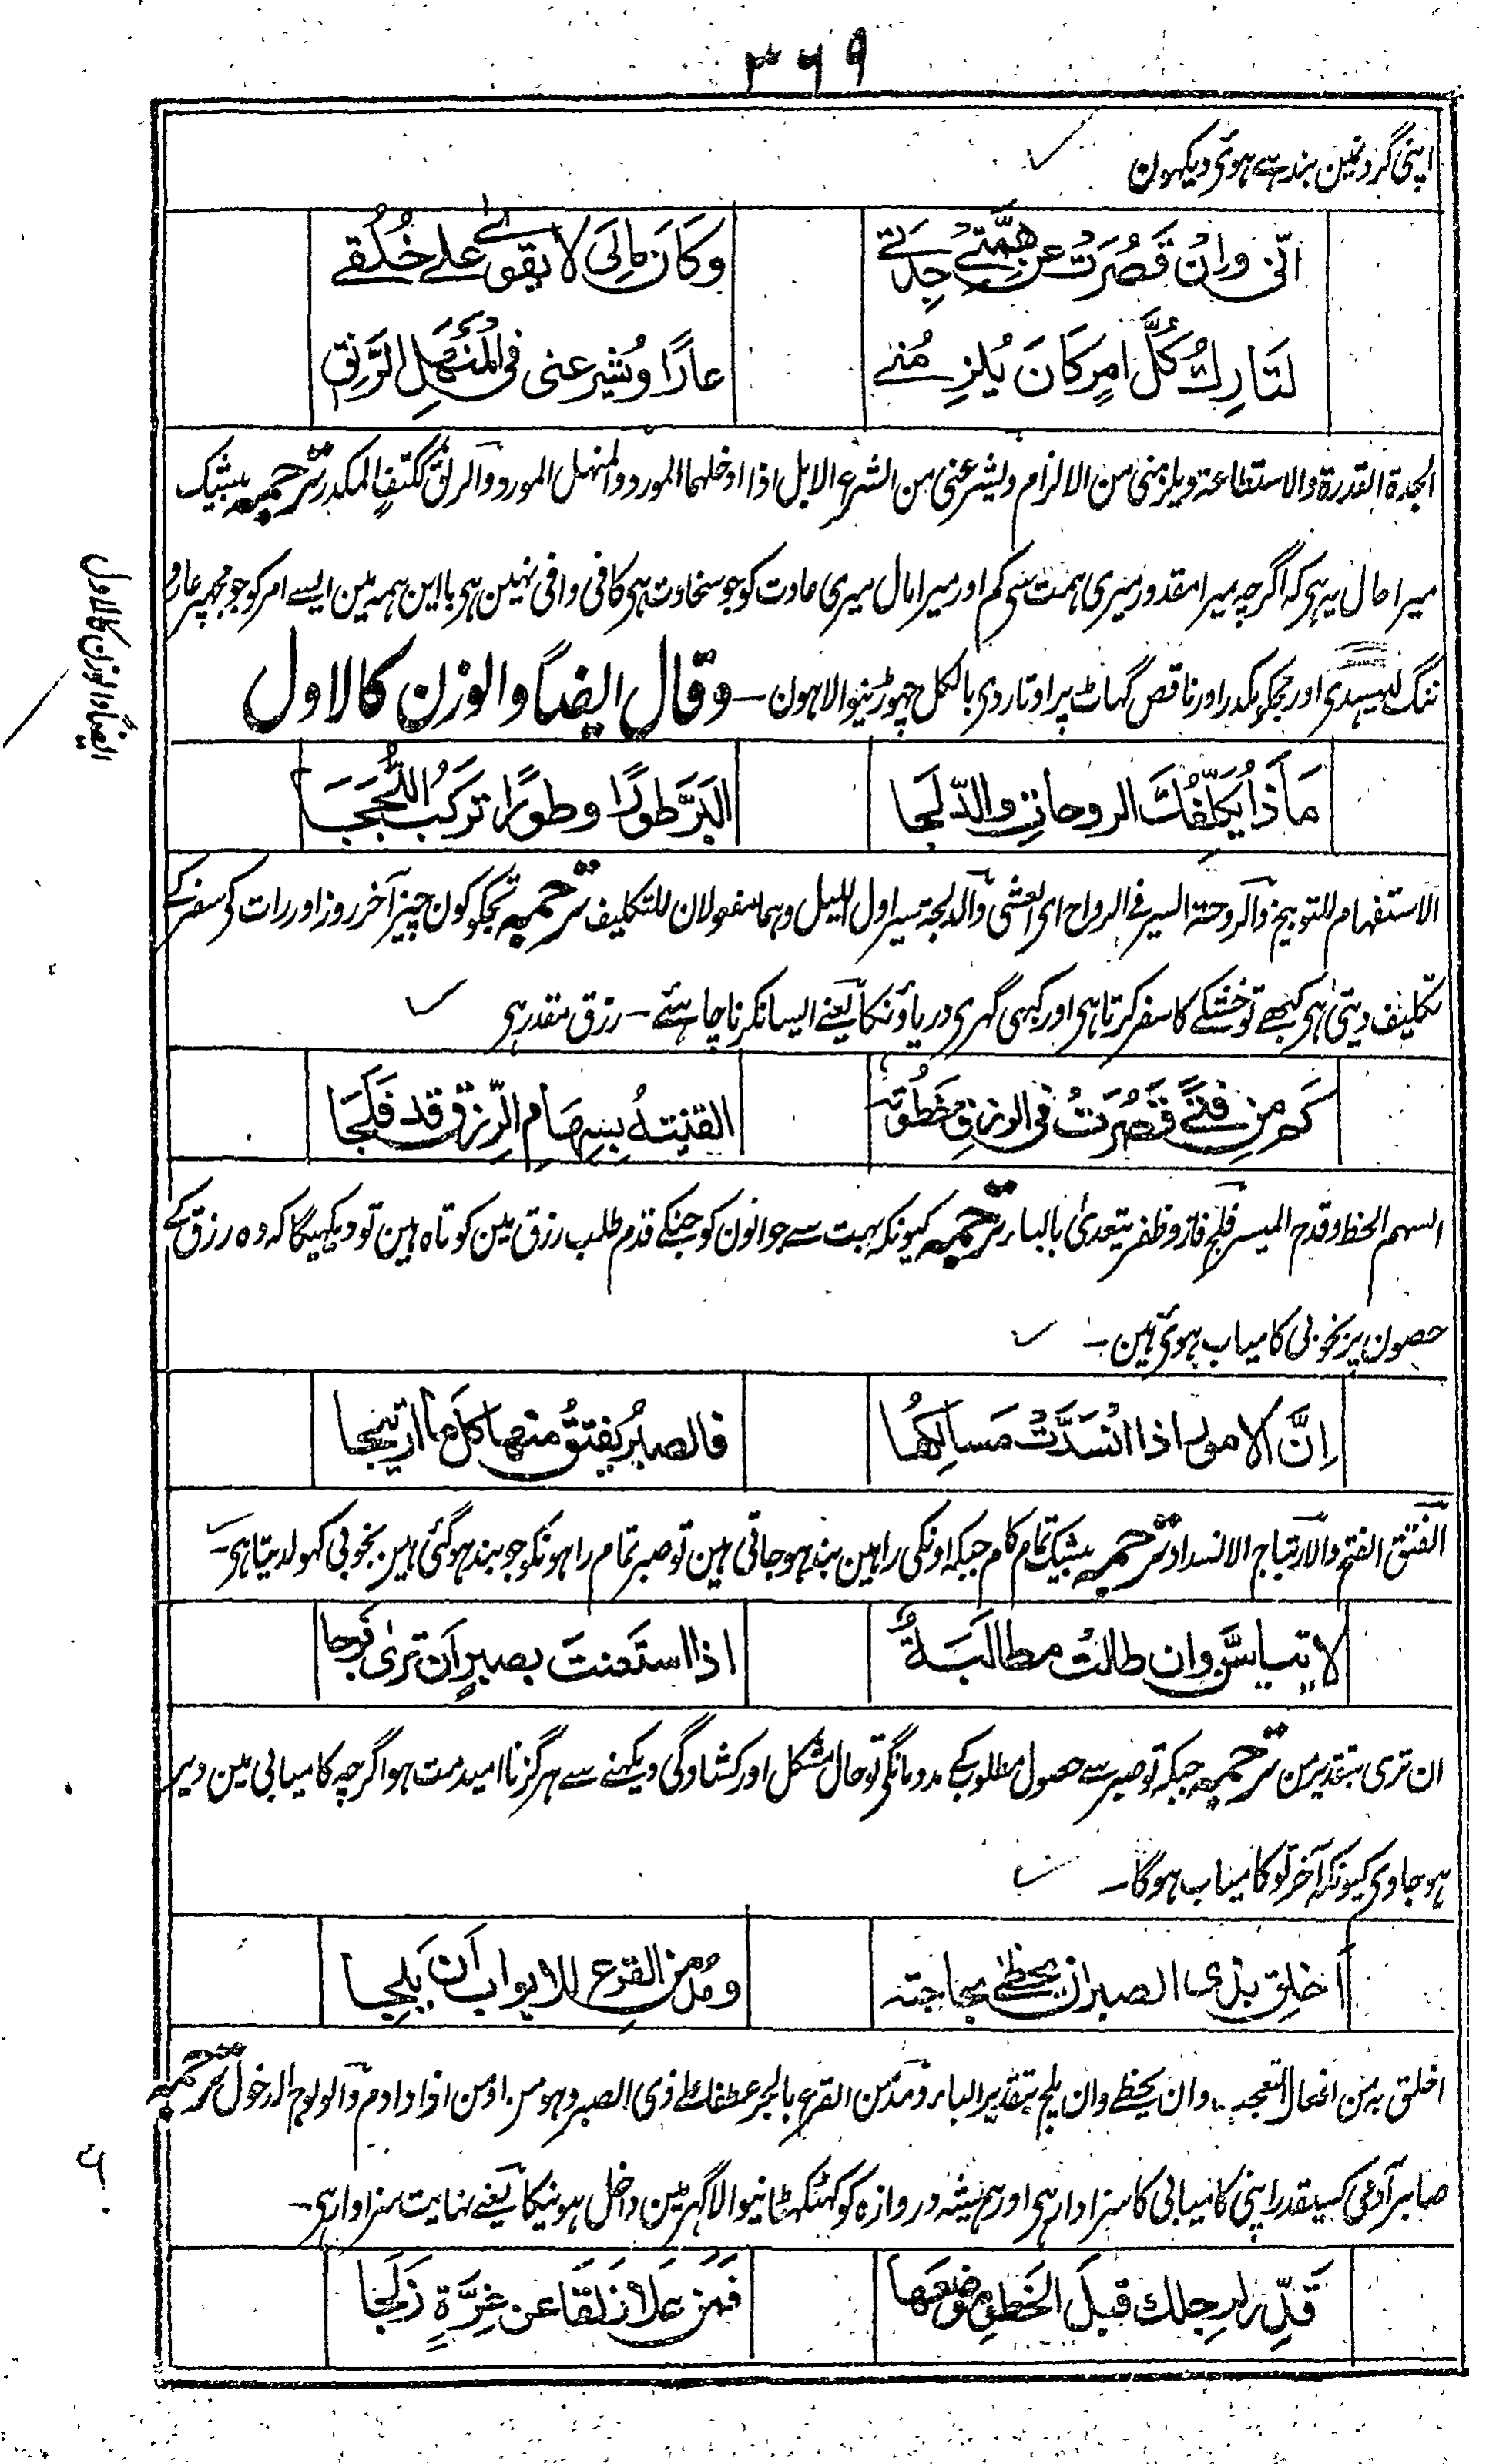 ۳۶۹
اپنی گردنمین بندہے ہوئی دیکہون
انّی وَاِنْ قَصُرَتْ عن هِمَّتِے جِدَتے وَكَانَ مَالِیَ لا يقوىٰ علے خُلُقے
لَتَارِكٌ كُلَّ امرٍ كَانَ يُلزِمُنے عارًا ويُشرِعنى فى المَنهَلِ الرَّنِقِ
الجدة القدرة والاستطاعة ويلزمنی من الالزام ويشرعنی من الشرع الابل اذا ادخلها المورد والمنہل المورد والرنق ککتف المکدر ترجمہ بیشک
میرا حال یہ ہی کہ اگرچہ میرا مقدور میری ہمت سی کم اور میرا مال میری عادت کو جو سخاوت ہی کافی وافی نہین ہی باا ین ہمہ مین ایسے امر کو جو مجہپر عار و
ننگ لہیدی اور مجکو مکدر اور ناقص گہاٹ پر اوتار دی بالکل چہوڑنیوالا ہون – وقال ایضًا والوزن کالاول
ایضًا والوزن کالاول
مَاذَا يُكَلِّفُكَ الروحاتِ والدّلجَا البَرَّ طورًا وطورًا تركبُ اللُّجَجَا
الاستفہام للتوبیخ والروحة السیر فی الرواح ای العشی والدلجة سیر اول اللیل وہما مفعولان للتکلیف ترجمہ تجکو کون چیز آخر روز اور رات کی سفر کے
تکلیف دیتی ہی کبھے تو خشکے کا سفر کرتا ہی اور کبہی گہری دریاؤنکا یعنے ایسا نکرنا چاہئے – رزق مقدر ہی
كم من فتًى قَصُرَتْ فى الرزقِ خطوتہ الفيتهُ بسِهَامِ الرّزق قد فَلَجَا
السہم الحظ وقدح المیسر فلج فاز وظفر یتعدیٰ بالباء ترجمہ کیونکہ بہت سے جوانون کو جنکے قدم طلب رزق مین کوتاہ ہین تو دیکہیگا کہ وہ رزق کے
حصون پر بخوبی کامیاب ہوئی ہین –
اِنَّ الامور اذا انْسَدَّتْ مَسالِكُهَا فالصبرُ يفتقُ منها كل ما ارتتجا
الفتق الفتح والارتتاج الانسداد ترجمہ بیشک تمام کام جبکہ اونکی راہین بند ہوجاتی ہین تو صبر تمام راہونکو جو بند ہوگئی ہین بخوبی کہولدیتا ہی –
لا تيأسَنَّ وان طالتْ مطالَبَةٌ اذا استَعنتَ بصبرٍ اَن ترىٰ فرجا
ان تری بتقدیر من ترجمہ جبکہ تو صبر سے حصول مطلوب کے مدد مانگی تو حال مشکل اور کشادگی دیکہنے سے ہرگز ناامید مت ہو اگرچہ کامیابی مین دیر
ہو جاوی کیونکہ آخر تو کامیاب ہوگا –
اَخلِق بذى الصبر ان يحظى بحاجته ومُدمِنِ القرع للابواب اَن يلِجا
اخلق بہ من افعال التعجب وان یحظے وان یلج بتقدیر الباء ومدمن القرع بالجر عطف علے ذی الصبر وہو من ادمن اذا داوم والولوج الدخول ترجمہ
صابر آدمی کسیقدر اپنی کامیابی کا سزاوار ہی اور ہمیشہ دروازہ کو کہٹکہٹانیوالا گہر مین داخل ہونیکا یعنے نہایت سزاوار ہی –
قَدِّر لرِجلك قبلَ الخَطوِ موضعَها فَمَن عَلا زَلَقًا عن غِرَّةٍ زَلَجَا